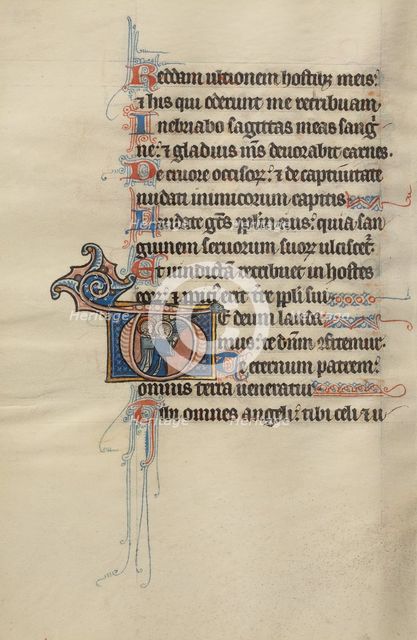 Reddam ultionem hostibꝫ meis:
⁊ his qui oderunt me retribuam.
Inebriabo sagittas meas sangꝰ
ne: ⁊ gladius mͥs deuorabit carnes.
De cruore occisoꝝ: ⁊ de captiuitate
nudati inimicorum capitis
Laudate gͣtes ipłm eius: quia san
guinem seruorum suoꝝ ulciscet͛.
Et uindictā retribuet in hostes
eoꝝ: ⁊ erit t͛re ipłi sui
Te deum lauda
mus: te dñm ꝯfitemur.
Te eternum patrem:
omnis terra ueneratur
Tibi omnes angeli: tibi celi ⁊ u
Heritage Images